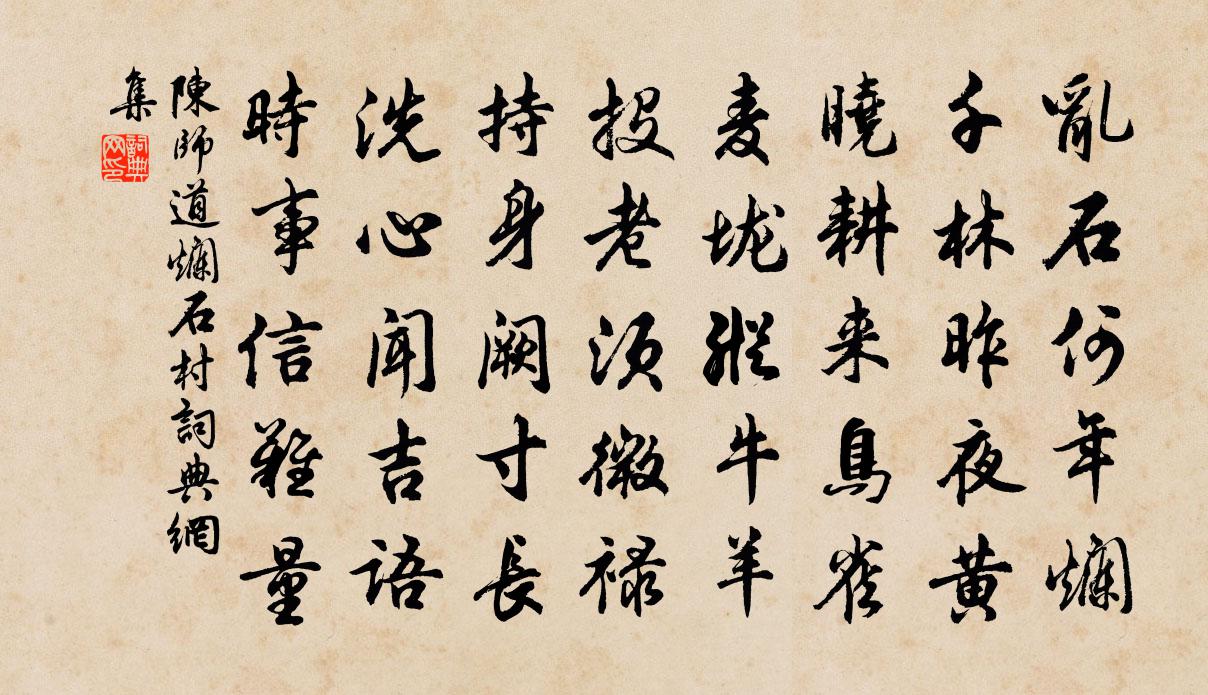 亂石何年爛
千林昨夜黄
曉耕来鳥雀
麦垅縱牛羊
投老須微禄
持身闕寸長
洗心闻吉語
時事信難量
陳師道爛石村詞典網
集
詞典網印